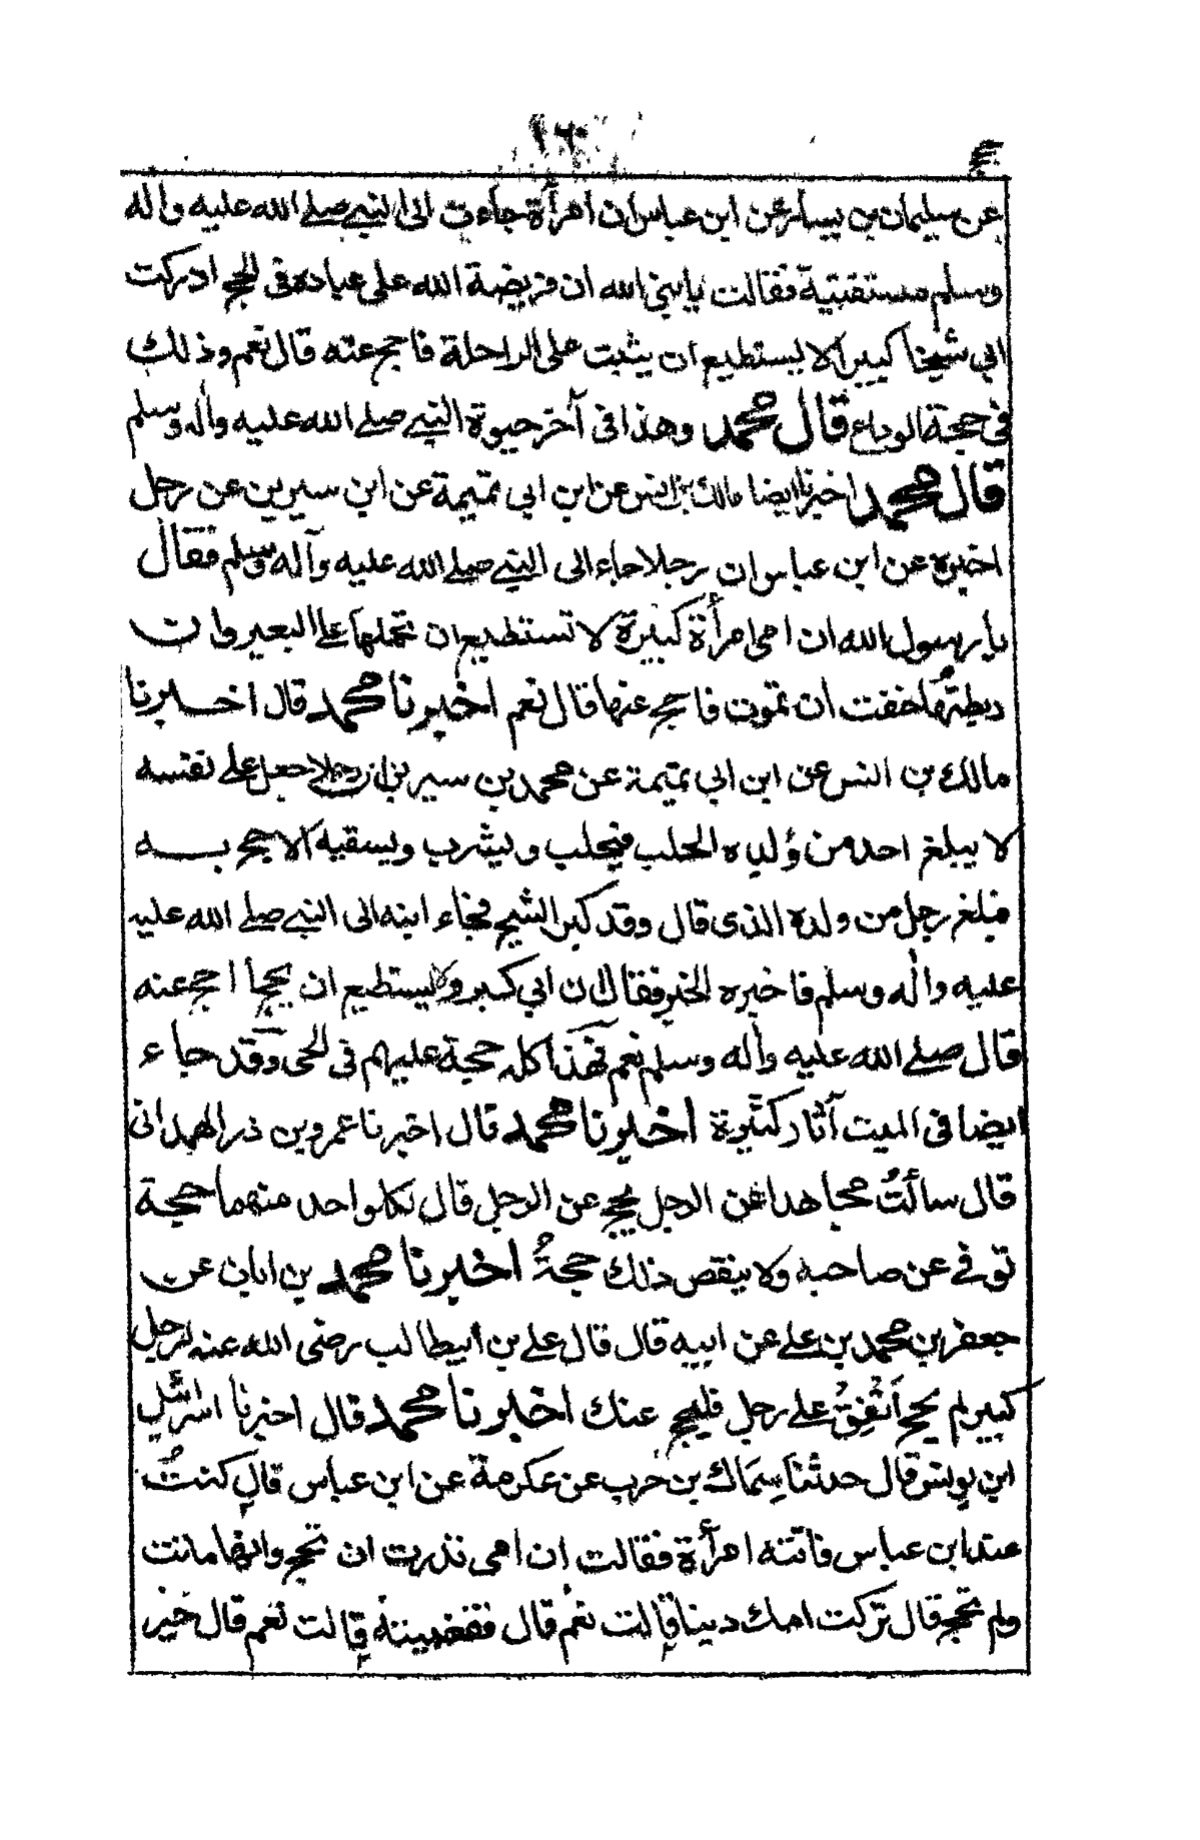 ١٦٠
عن سليمان بن يسار عن ابن عباس ان امرأة جاءت الى النبي صلى الله عليه واله
وسلم مستفتية فقالت يا نبي الله ان فريضة الله على عباده فى الحج ادركت
ابي شيخا كبيرا لا يستطيع ان يثبت على الراحلة فاحج عنه قال نعم وذلك
فى حجة الوداع قال محمد وهذا فى آخر حيوة النبي صلى الله عليه واله وسلم
قال محمد اخبرنا ايضا مالك بن انس عن ابن ابي تميمة عن ابن سيرين عن رجل
اخبره عن ابن عباس ان رجلا جاء الى النبي صلى الله عليه وآله وسلم فقال
يا رسول الله ان امى امرأة كبيرة لا تستطيع ان تحملها على البعير وان
ربطتها خفت ان تموت فاحج عنها قال نعم اخبرنا محمد قال اخبرنا
مالك بن انس عن ابن ابي تميمة عن محمد بن سيرين ان رجلا جعل على نفسه
لا يبلغ احد من ولده الحلب فيحلب ويشرب ويسقيه الا حج به
فبلغ رجل من ولده الذى قال وقد كبر الشيخ فجاء ابنه الى النبي صلى الله عليه
عليه واله وسلم فاخبره الخبر فقال ان ابي كبر ولا يستطيع ان يحج أ احج عنه
قال صلى الله عليه وأله وسلم نعم فهذا كله حجة عليهم فى الحى وقد جاء
ايضا فى الميت آثار كثيرة اخبرنا محمد قال اخبرنا عمرو بن ذر الهمدانى
قال سألتُ مجاهدا عن الرجل يحج عن الرجل قال لكل واحد منهما حجة
توفى عن صاحبه ولا ينقص ذلك حجةُ اخبرنا محمد بن ابان عن
جعفر بن محمد بن على عن ابيه قال قال على بن ابيطالب رضى الله عنه لرجل
كبير لم يحج اَنْفِقْ على رجل فليحج عنك اخبرنا محمد قال اخبرنا اسرائيل
ابن يونس قال حدثنا سِمَاك بن حرب عن عكرمة عن ابن عباس قال كنتُ
عند ابن عباس فاتته امرأة فقالت ان امى نذرت ان تحج وانها ماتت
ولم تحج قال تركت امك دينا قالت نعم قال فقضيته قالت نعم قال خير